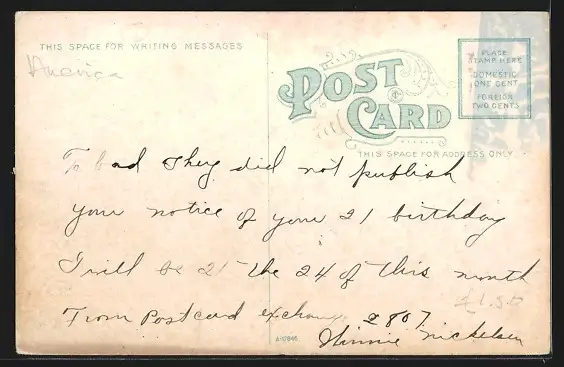 THIS SPACE FOR WRITING MESSAGES
America
POST CARD
THIS SPACE FOR ADDRESS ONLY
PLACE
STAMP HERE
DOMESTIC
ONE CENT
FOREIGN
TWO CENTS
To bad they did not publish
your notice of your 21 birthday
I will be 21 the 24 of this month
£1.50
From Postcard exchange 2807
Minnie Nickelsen
A-17845